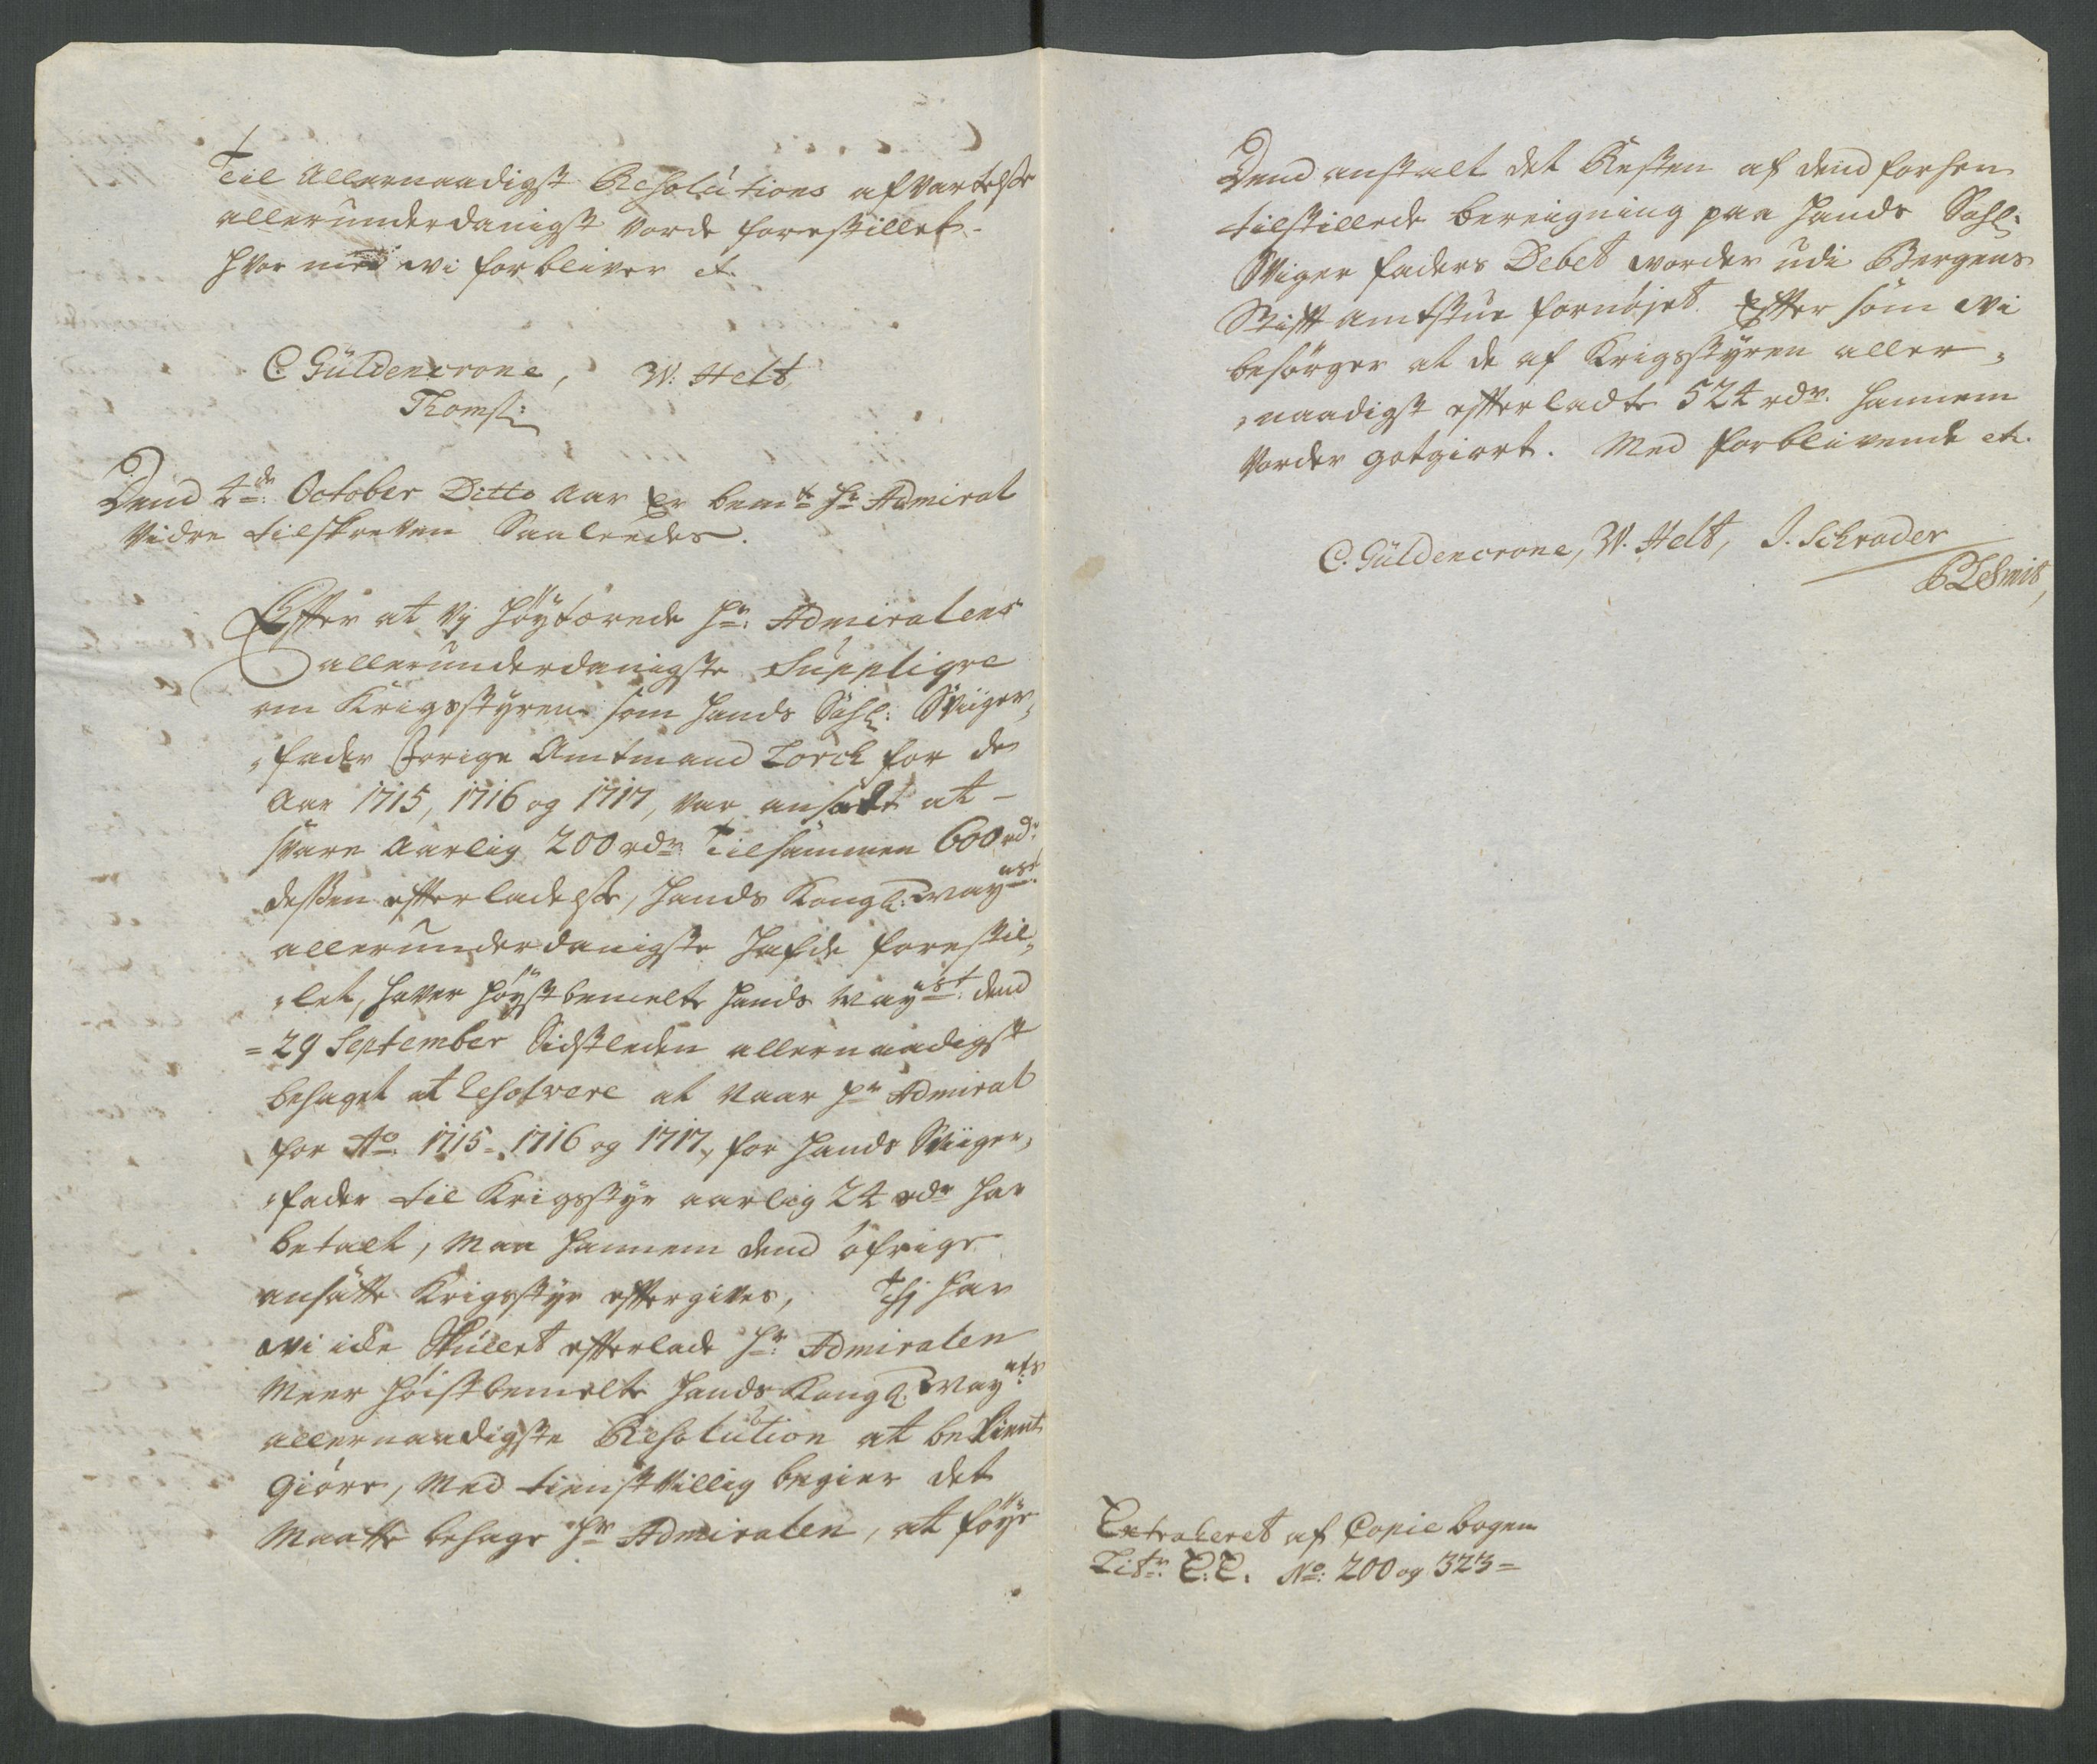 Til Allernaadigst Resolutions afvartelse
allerunderdanigst vorde forestillet.
hvor med vi forbliver etc.
C. Güldencrone, W: Helt,
Thoms:
Dend 4de October Ditto Aar Er bemte Hr Admiral
vidre tilskreven Saaleedes.
Effter at vj höytærede Hr: Admiralens
allerunderdanigste Supplique
om Krigsstyren som hands Sahl: Sviiger¸
¸fader forige Amtmand Lorch for de
Aar 1715, 1716 og 1717, var ansadt at
svare Aarlig 200 rdr: Tilsammen 600 rdr
dessen effterladelse, hands Kongl: Mayst:
allerunderdanigste hafde forestil¸
¸let, haver höystbemelte hands Mayst: dend
29 September Sidstleden allernaadigst
behaget at Resolvere at naar Hr Admiral
for Ao 1715, 1716 og 1717, for hands Sviiger¸
¸fader til Krigsstyr aarlig 24 rdr har
betalt, maa hannem dend öfrige
ansatte Krigsstyr efftergives, Thj har
vi icke Skullet effterlade Hr: Admiralen
Meer höistbemelte hands Kongl: Mayts
allernaadigste Resolution at bekient
giöre, med tienstvillig begier det
Maatte behage Hr Admiralen, at föye
Dend anstalt det Resten af dend forhen
tilstillede bereigning paa hands Sahl:
Sviger faders Debet vorder udi Bergens
Stift Amtstue fornöjet. Effter som vi
besörger at de af Krigsstyren aller¸
¸naadigst effterladte 524 rdr. hannem
vorder gotgiort. Med forblivende etc.
C. Güldencrone, W. Helt, J. Schrader
Extraheret af Copie bogen
Litr. C.C. No: 200 og 323